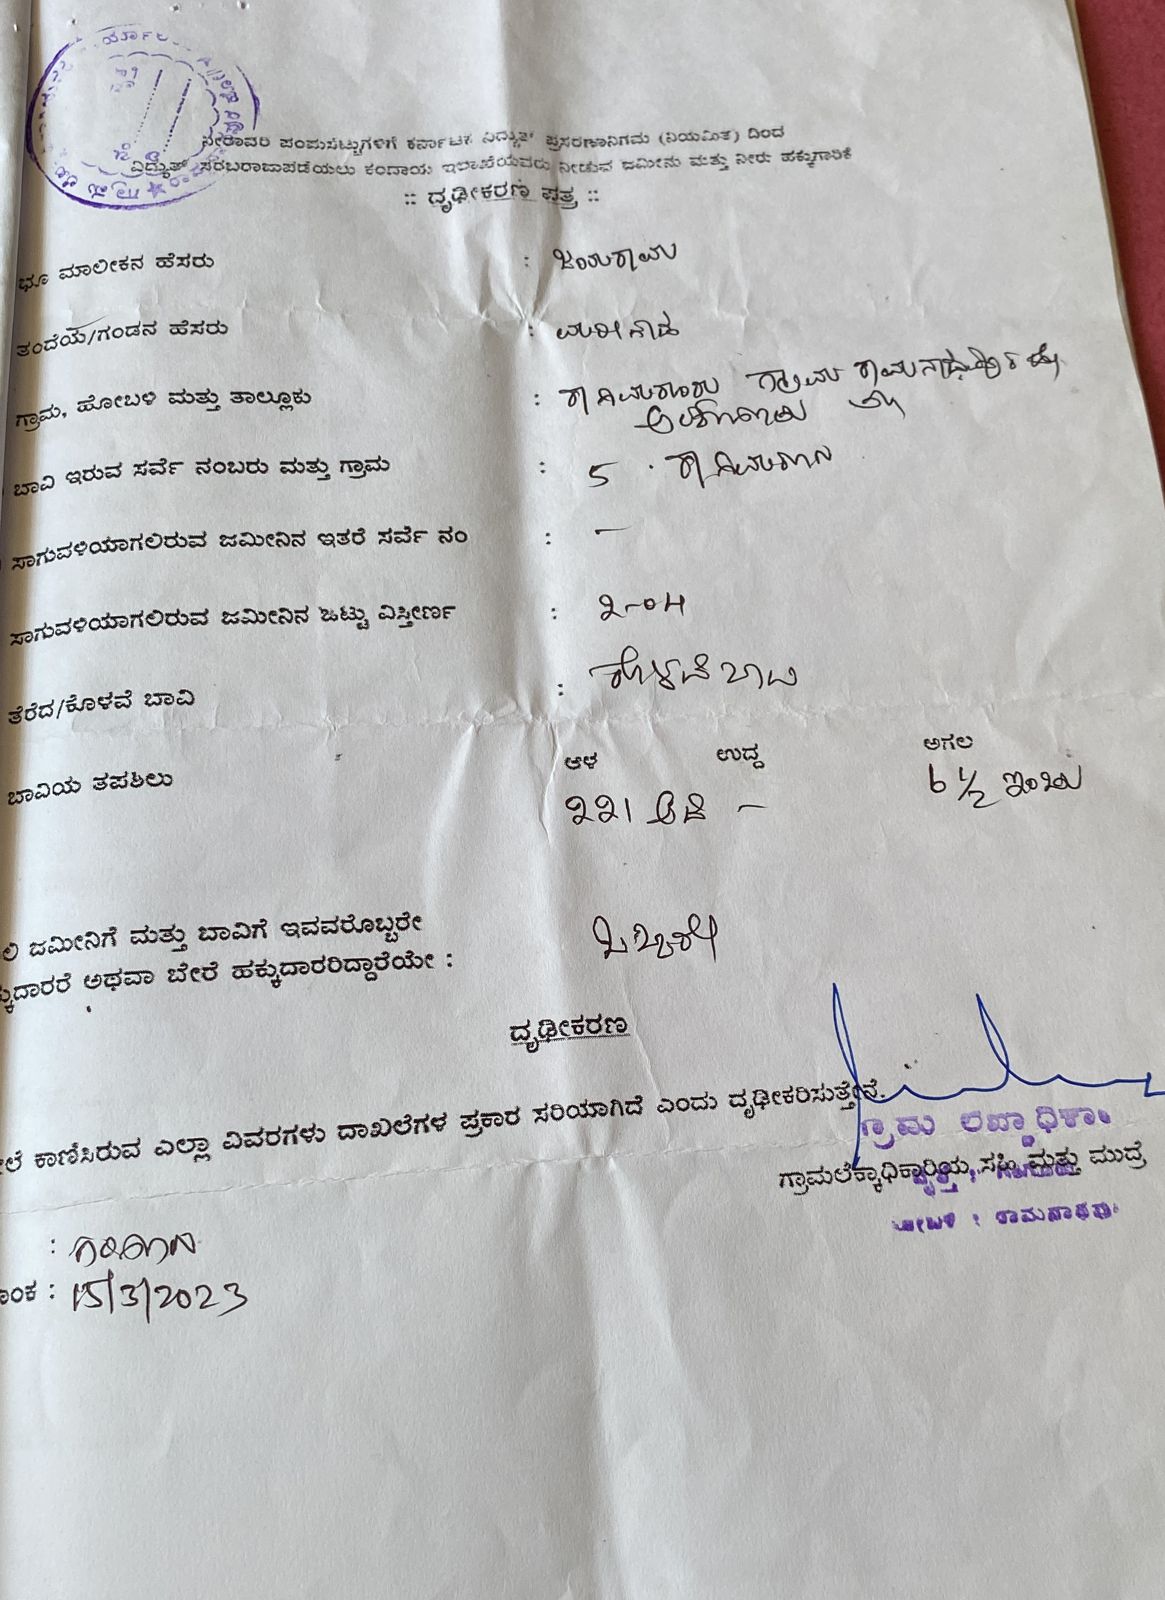 ನೀರಾವರಿ ಪಂಪುಸೆಟ್ಟುಗಳಿಗೆ ಕರ್ನಾಟಕ ವಿದ್ಯುತ್ ಪ್ರಸರಣಾನಿಗಮ (ನಿಯಮಿತ) ದಿಂದ
ವಿದ್ಯುತ್ ಸರಬರಾಜುಪಡೆಯಲು ಕಂದಾಯ ಇಲಾಖೆಯವರು ನೀಡುವ ಜಮೀನು ಮತ್ತು ನೀರು ಹಕ್ಕುಗಾರಿಕೆ
:: ದೃಢೀಕರಣ ಪತ್ರ ::
ಭೂ ಮಾಲೀಕನ ಹೆಸರು : ಜಯರಾಮ
ತಂದೆಯ/ಗಂಡನ ಹೆಸರು :
ಗ್ರಾಮ, ಹೋಬಳಿ ಮತ್ತು ತಾಲ್ಲೂಕು : ಗ್ರಾಮ ರಾಮನಾಥಪುರ
ಬಾವಿ ಇರುವ ಸರ್ವೆ ನಂಬರು ಮತ್ತು ಗ್ರಾಮ : 5
ಸಾಗುವಳಿಯಾಗಲಿರುವ ಜಮೀನಿನ ಇತರೆ ಸರ್ವೆ ನಂ : —
ಸಾಗುವಳಿಯಾಗಲಿರುವ ಜಮೀನಿನ ಒಟ್ಟು ವಿಸ್ತೀರ್ಣ : ೨-೦೪
ತೆರೆದ/ಕೊಳವೆ ಬಾವಿ : ಕೊಳವೆ ಬಾವಿ
ಬಾವಿಯ ತಪಶಿಲು ಆಳ ಉದ್ದ ಅಗಲ
221 ಅಡಿ — 6 1/2 ಇಂಚು
ಲಿ ಜಮೀನಿಗೆ ಮತ್ತು ಬಾವಿಗೆ ಇವವರೊಬ್ಬರೇ
ಕ್ಕುದಾರರೆ ಅಥವಾ ಬೇರೆ ಹಕ್ಕುದಾರರಿದ್ದಾರೆಯೇ : ಒಬ್ಬರೇ
ದೃಢೀಕರಣ
ಲೆ ಕಾಣಿಸಿರುವ ಎಲ್ಲಾ ವಿವರಗಳು ದಾಖಲೆಗಳ ಪ್ರಕಾರ ಸರಿಯಾಗಿದೆ ಎಂದು ದೃಢೀಕರಿಸುತ್ತೇನೆ.
ಗ್ರಾಮ ಲೆಕ್ಕಾಧಿಕಾರಿ
ಗ್ರಾಮಲೆಕ್ಕಾಧಿಕಾರಿಯ ಸಹಿ ಮತ್ತು ಮುದ್ರೆ
ಹೋಬಳಿ : ರಾಮನಾಥಪುರ
:
ಾಂಕ : 15/3/2023